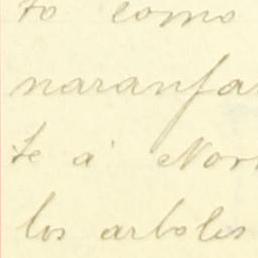 to como
naranja
te á Nor
los arboles